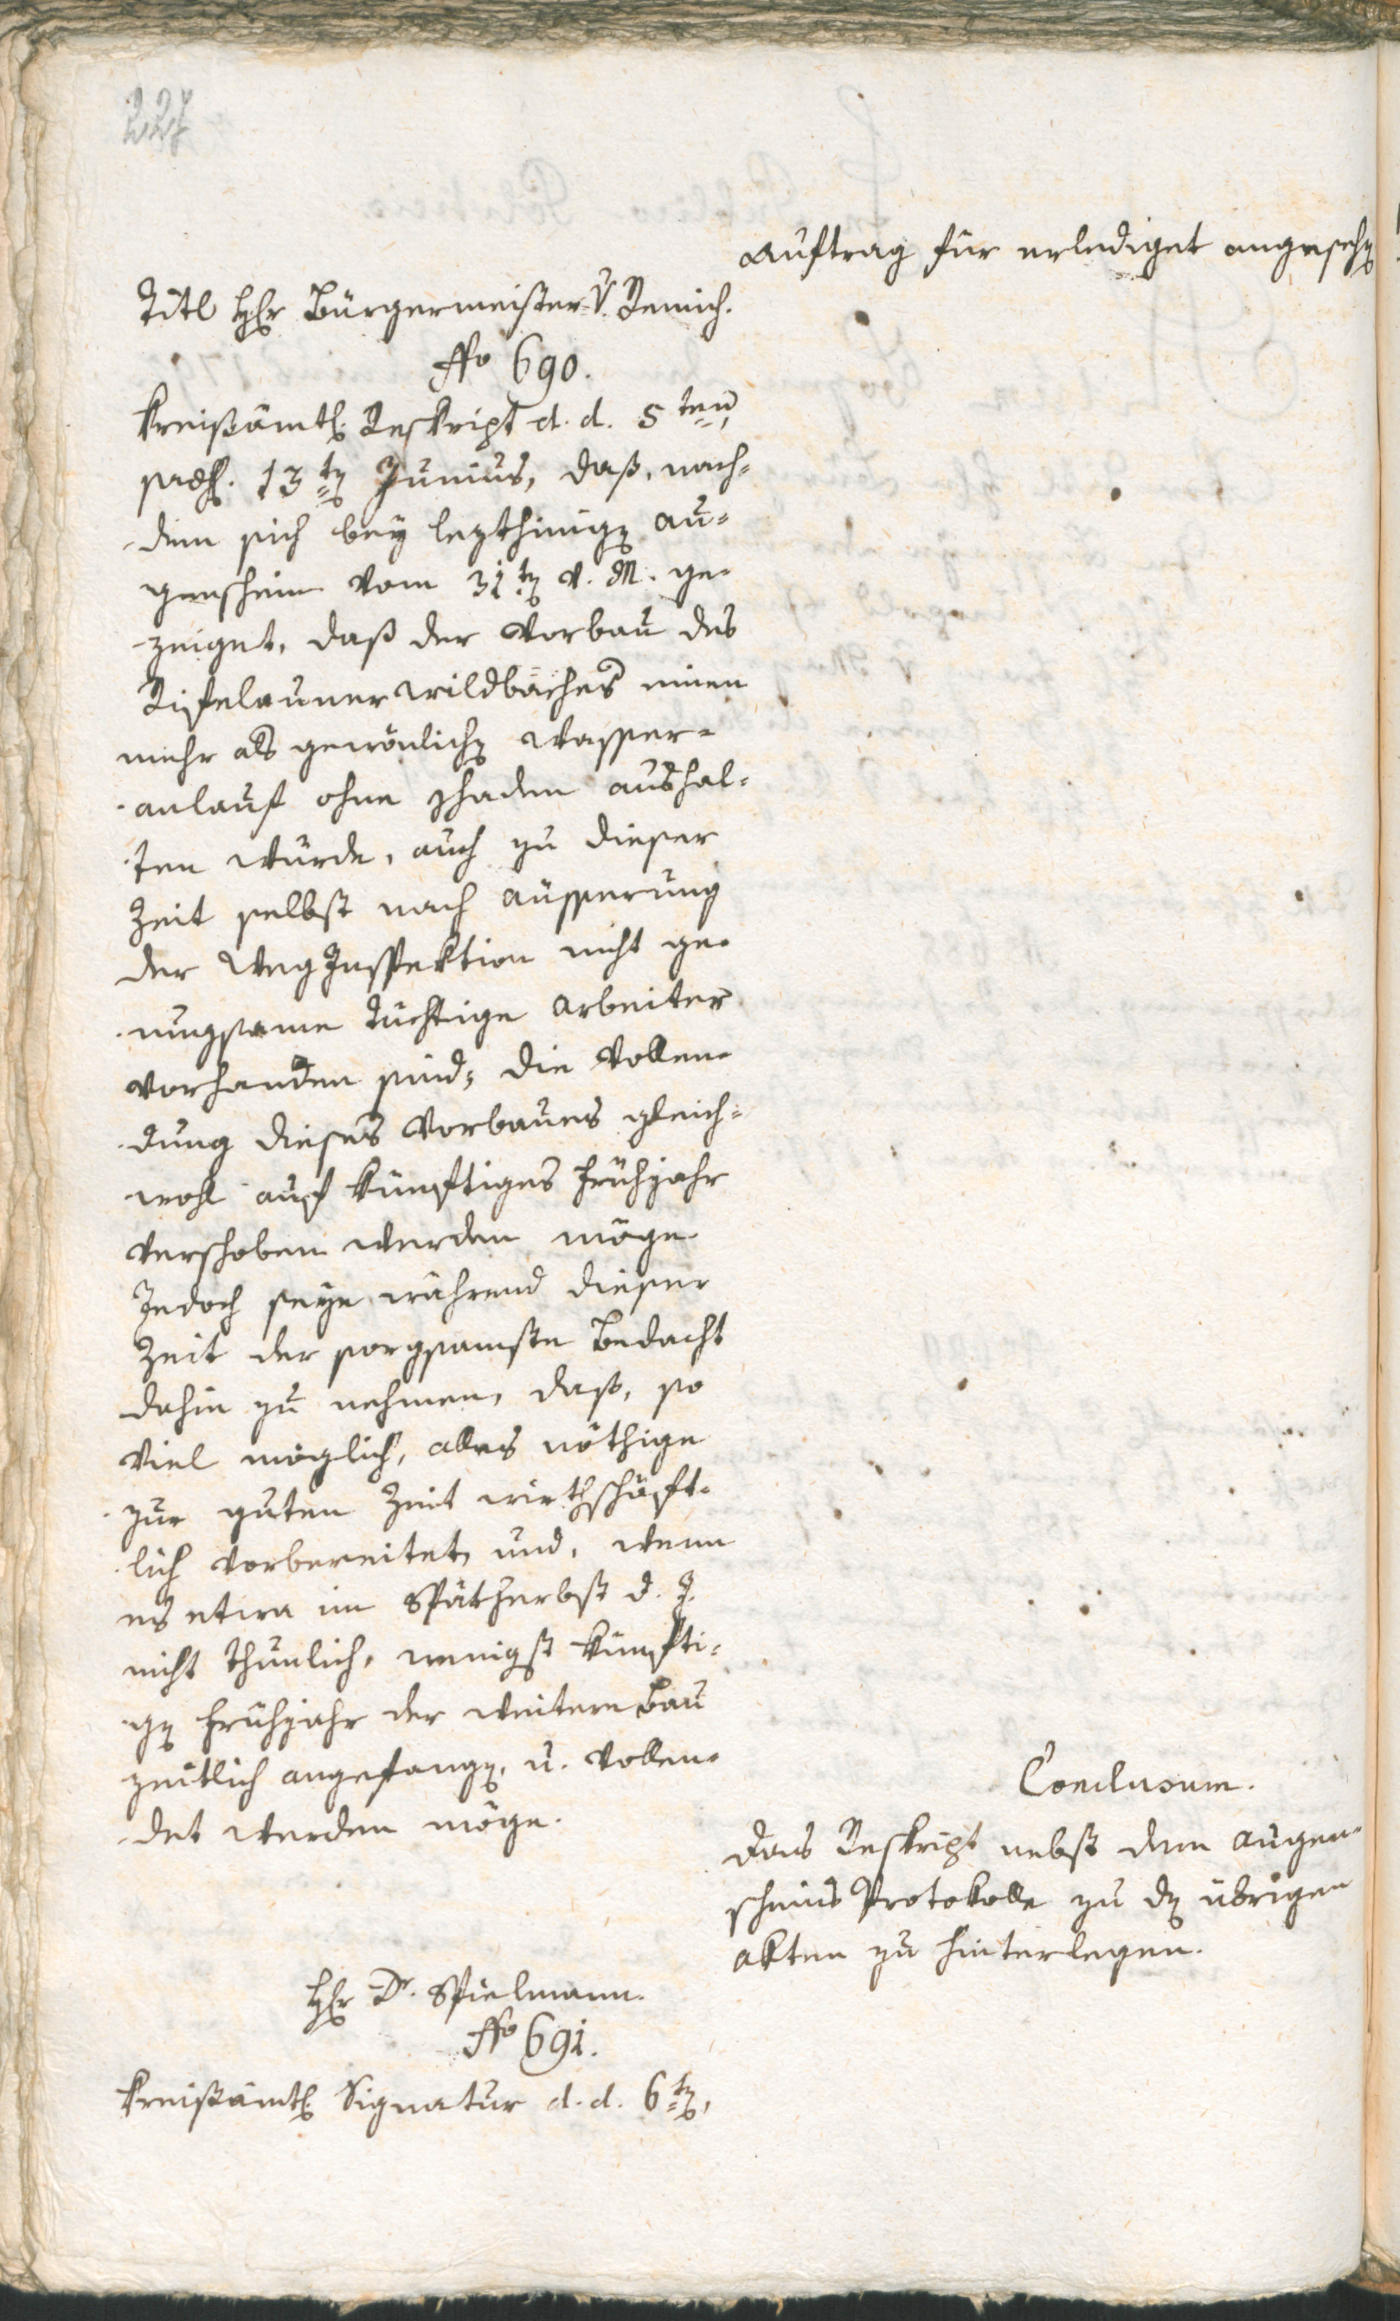 227
Auftrag für erlediget angesehen
Titl Herr Bürgermeister v. Remich.
No 690.
Kreißämtl. Reskript d. d. 5ten,
13ten Junius, daß, nach-
dem sich bey lezthinigen Au-
genschein vom 31ten v. M. ge-
zeiget, daß der Vorbau des
Rifelauner Wildbaches einen
mehr als gewönlichen Wasser-
anlauf ohne Schaden aushal-
ten würde, auch zu dieser
Zeit selbst nach Äusserung
der Weg Inspektion nicht ge-
nugsame tüchtige Arbeiter
vorhanden sind, die Vollen-
dung dieses Vorbaues gleich-
wohl auf künftiges Frühjahr
verschoben werden möge.
Jedoch seye während dieser
Zeit der sorgsamste Bedacht
dahin zu nehmen, daß, so
viel möglich, alles nöthige
zur guten Zeit wirthschäft-
lich vorbereitet, und, wenn
es etwa im Spätherbst d. J.
nicht thunlich, wenigst künfti-
gen Frühjahr der weitere Bau
zeitlich angefangen, u. vollen-
det werden möge.
Conclusum.
Das Reskript nebst dem Augen-
scheins Protokolle zu den übrigen
Akten zu hinterlegen.
Herr Dr. Spielmann.
No 691.
Kreißämtl. Signatur d. d. 6ten,